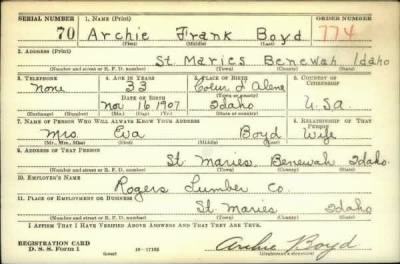 SERIAL NUMBER 1. NAME (Print) ORDER NUMBER
70 Archie Frank Boyd 774
(First) (Middle) (Last)
2. ADDRESS (Print)
St. Maries Benewah Idaho
(Number and street or R. F. D. number) (Town) (County) (State)
3. TELEPHONE 4. AGE IN YEARS 5. PLACE OF BIRTH 6. COUNTRY OF CITIZENSHIP
None 33 Coeur d'Alene
DATE OF BIRTH
Nov 16 1907 Idaho U.S.A
(Exchange) (Number) (Mo.) (Day) (Yr.) (State or country)
7. NAME OF PERSON WHO WILL ALWAYS KNOW YOUR ADDRESS 8. RELATIONSHIP OF THAT PERSON
Mrs. Eva Boyd Wife
(Mr., Mrs., Miss) (First) (Middle) (Last)
9. ADDRESS OF THAT PERSON
St Maries, Benewah Idaho.
(Number and street or R. F. D. number) (Town) (County) (State)
10. EMPLOYER'S NAME
Rogers Lumber Co.
11. PLACE OF EMPLOYMENT OR BUSINESS
St Maries Idaho
(Number and street or R. F. D. number) (Town) (County) (State)
I AFFIRM THAT I HAVE VERIFIED ABOVE ANSWERS AND THAT THEY ARE TRUE.
REGISTRATION CARD
D. S. S. Form 1 16-17105 Archie Boyd
(over) (Registrant's signature)